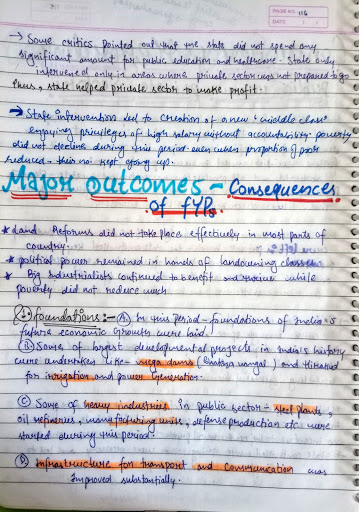 PAGE NO. 116
DATE
→ Some critics pointed out that the state did not spend any
significant amount for public education and healthcare. State only
intervened only in areas where private sector was not prepared to go
Thus, state helped private sector to make profit.
→ State intervention led to creation of a new 'middle class'
enjoying privileges of high salary without accountability. poverty
did not decline during this period even when proportion of poor
reduced - their no. kept going up.
Major Outcomes - Consequences
of FYPs
* Land Reforms did not take place effectively in most parts of
country.
* political power remained in hands of landowning classes
* Big industrialists continued to benefit and thrive while
poverty did not reduce much
foundations :- (A) In this period - foundations of India's
future economic Growth were laid.
(B) Some of largest developmental projects in India's history
were undertaken like - mega dams (Bhakra nangal) and Hirakud
for irrigation and power Generation.
(C) Some of heavy industries in public sector - steel plants,
oil refineries, manufacturing units, defense production etc were
started during this period.
(D) Infrastructure for transport and communication was
improved substantially.